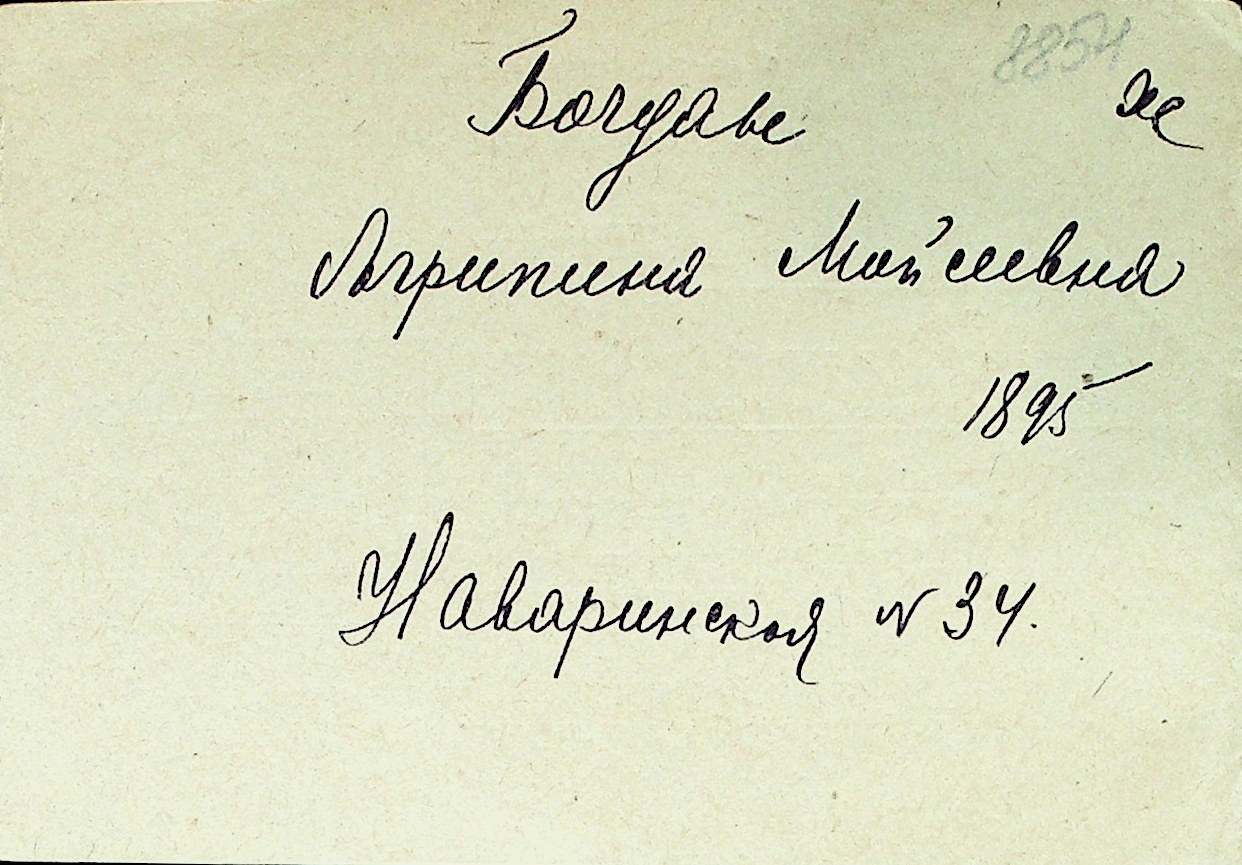 8854
Богдан ж
Агрипина Мойсеивна
1895
Наваринская N 34.